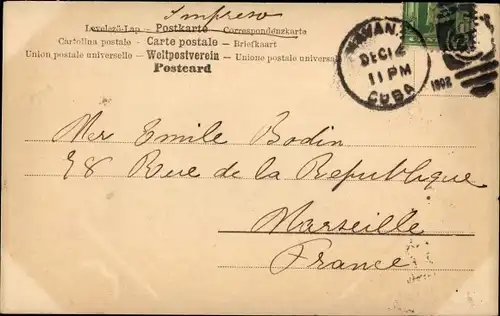 Impreso
Levelező-Lap — Postkarte — Correspondenzkarte
Cartolina postale — Carte postale — Briefkaart
Union postale universelle — Weltpostverein — Unione postale universale
Postcard
HAVANA
DEC 14
11 PM
CUBA
1902
Mer Emile Bodin
78 Rue de la Republique
Marseille
France